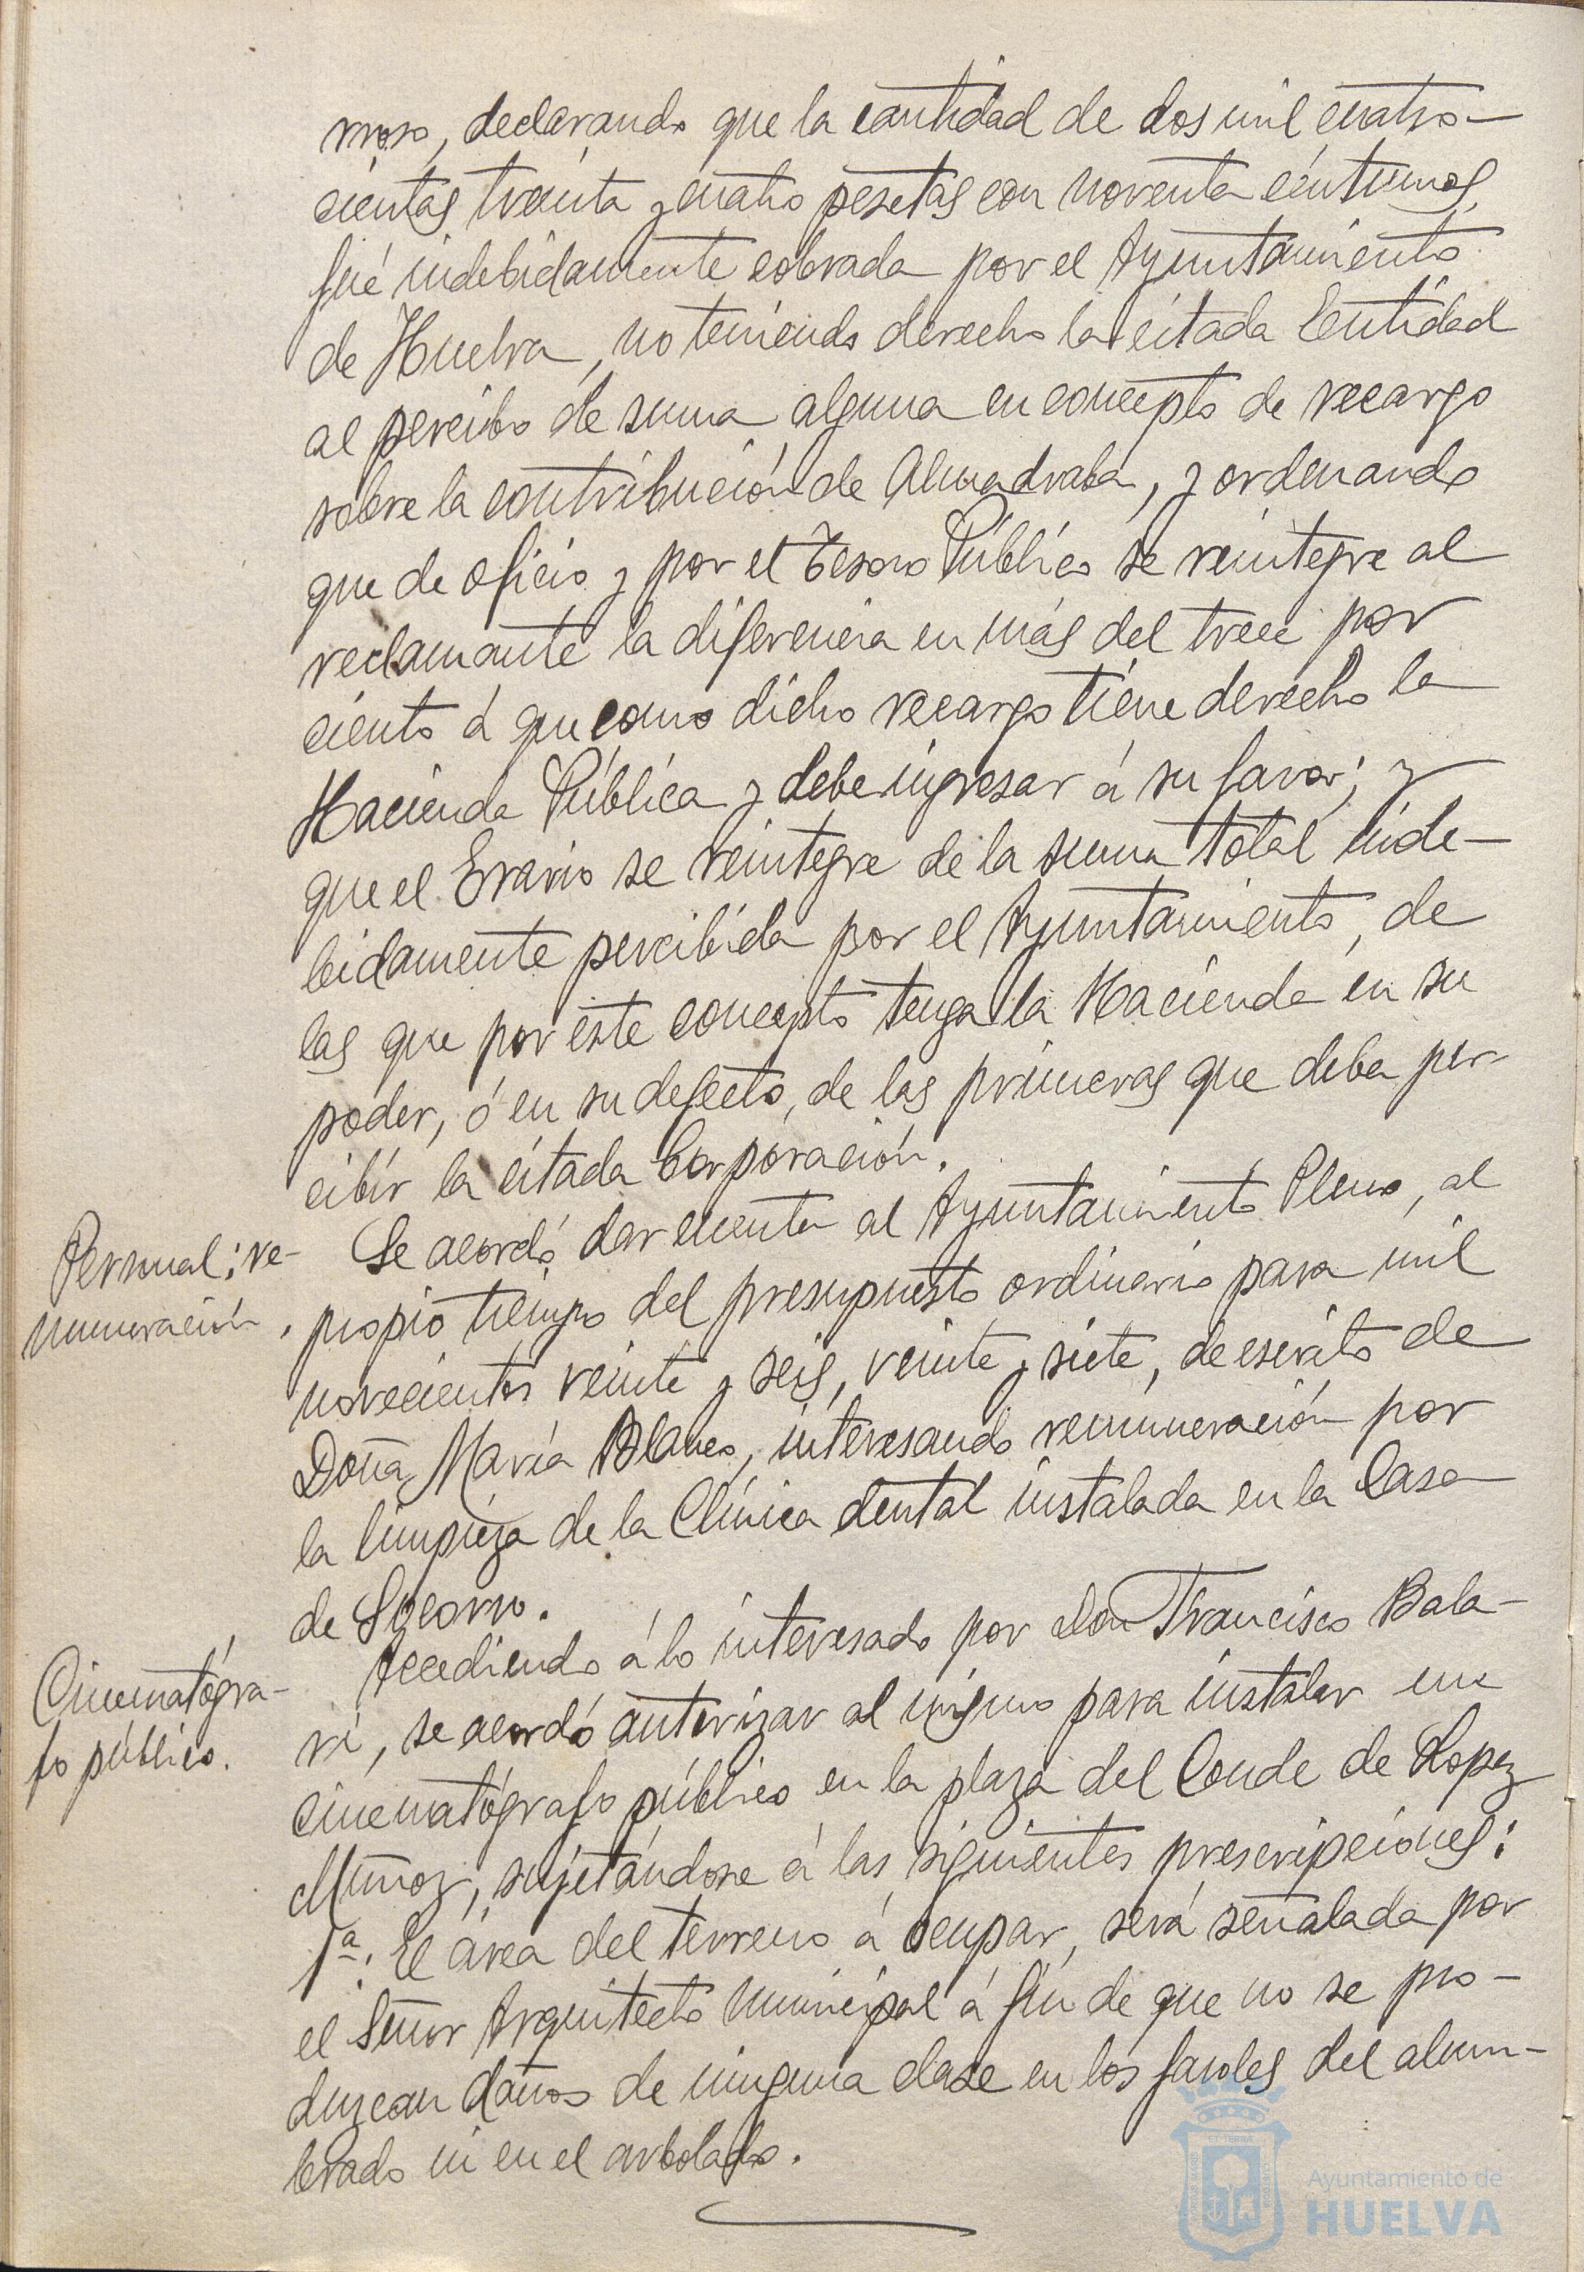 rroso, declarando que la cantidad de dos mil cuatro-
cientas treinta y cuatro pesetas con noventa céntimos,
fué indebidamente cobrada por el Ayuntamiento
de Huelva, no teniendo derecho la citada Entidad
al percibo de suma alguna en concepto de recargo
sobre la contribución de Almadraba, y ordenando
que de oficio y por el Tesoro Público se reintegre al
reclamante la diferencia en más del trece por
ciento á que como dicho recargo tiene derecho la
Hacienda Pública y debe ingresar á su favor; y
que el Erario se reintegre de la suma total inde-
bidamente percibida por el Ayuntamiento, de
las que por este concepto tenga la Hacienda en su
poder, ó en su defecto, de las primeras que deba per-
cibir la citada Corporación.
Personal; re-
muneración.
Se acordó dar cuenta al Ayuntamiento Pleno, al
propio tiempo del presupuesto ordinario para mil
novecientos veinte y seis, veinte y siete, de escrito de
Doña María Blanco, interesando remuneración por
la limpieza de la Clínica dental instalada en la Casa
de Socorro.
Cinematógra-
fo público.
Accediendo á lo interesado por Don Francisco Bala-
rí, se acordó autorizar al mismo para instalar un
cinematógrafo público en la plaza del Conde de Lopez
Muñoz, sujetándose á las siguientes prescripciones:
1ª: El área del terreno á ocupar, será señalada por
el Señor Arquitecto Municipal á fin de que no se pro-
duzcan daños de ninguna clase en los faroles del alum-
brado ni en el arbolado.
Ayuntamiento de
HUELVA